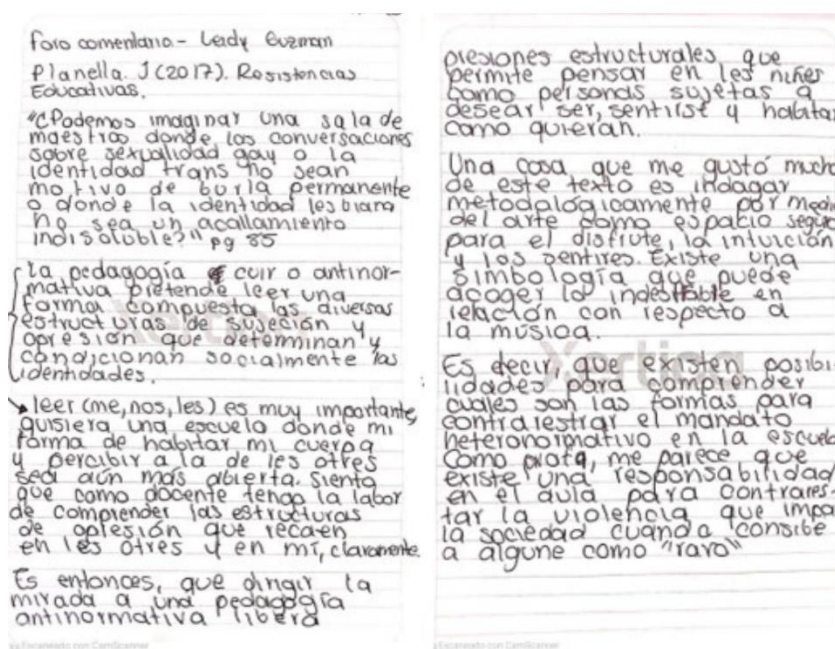 foro comentario - Leidy Guzman
Planella. J (2017). Resistencias
Educativas.
"¿Podemos imaginar una sala de
maestros donde las conversaciones
sobre sexualidad gay o la
identidad trans no sean
motivo de burla permanente
o donde la identidad lesbiana
no sea un acallamiento
indisoluble?" pg 85
La pedagogía cuir o antinor-
mativa pretende leer una
forma compuesta las diversas
estructuras de sujeción y
opresión que determinan y
condicionan socialmente las
identidades.
leer (me, nos, les) es muy importante,
quisiera una escuela donde mi
forma de habitar mi cuerpo
y percibir a la de les otres
sea aún más abierta. Siento
que como docente tengo la labor
de comprender las estructuras
de opresión que recaen
en les otres y en mí, claramente
Es entonces, que dirigir la
mirada a una pedagogía
antinormativa libera
presiones estructurales que
permite pensar en les niñes
como personas sujetas a
desear ser, sentirse y habitar
como quieran.
Una cosa que me gustó mucho
de este texto es indagar
metodologicamente por medio
del arte como espacio seguro
para el disfrute, la intuición
y los sentires. Existe una
simbología que puede
acoger lo indestible en
relación con respecto a
la música.
Es decir, que existen posibi-
lidades para comprender
cuales son las formas para
contrarestrar el mandato
heteronormativo en la escuela
Como profa, me parece que
existe una responsabilidad
en el aula para contrares-
tar la violencia que impa
la sociedad cuando consibe
a algune como "raro"
Escaneado con CamScanner
Escaneado con CamScanner